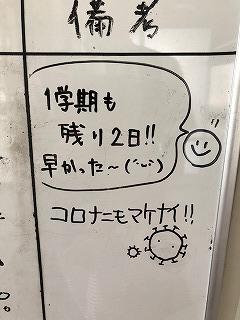 備考
1学期も
残り2日!!
早かった〜(˘ω˘)
コロナニモマケナイ!!